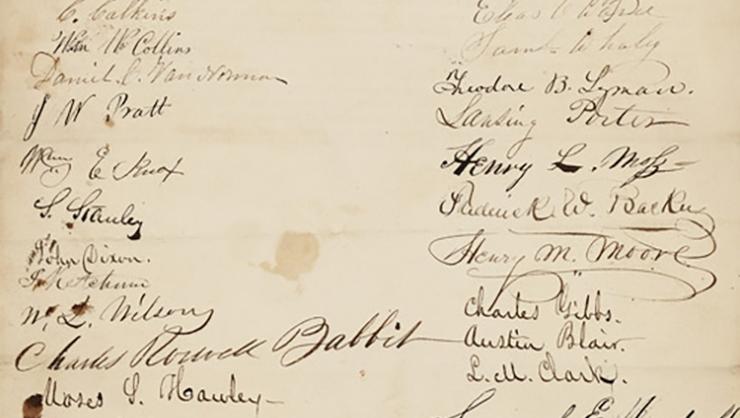 C. Calkins
Wm W Collins
Daniel C. Van Norman
J W Pratt
Wm E Knox
S. Stanley
John Dixon.
W. L. Wilson
Charles Roswell Babbit
Moses S. Hawley
Saml Whaley
Theodore B. Lyman.
Lansing Porter
Henry L. Moss
Frederick W. Backus
Henry M. Moore
Charles Gibbs.
Austin Blair.
L. M. Clark.